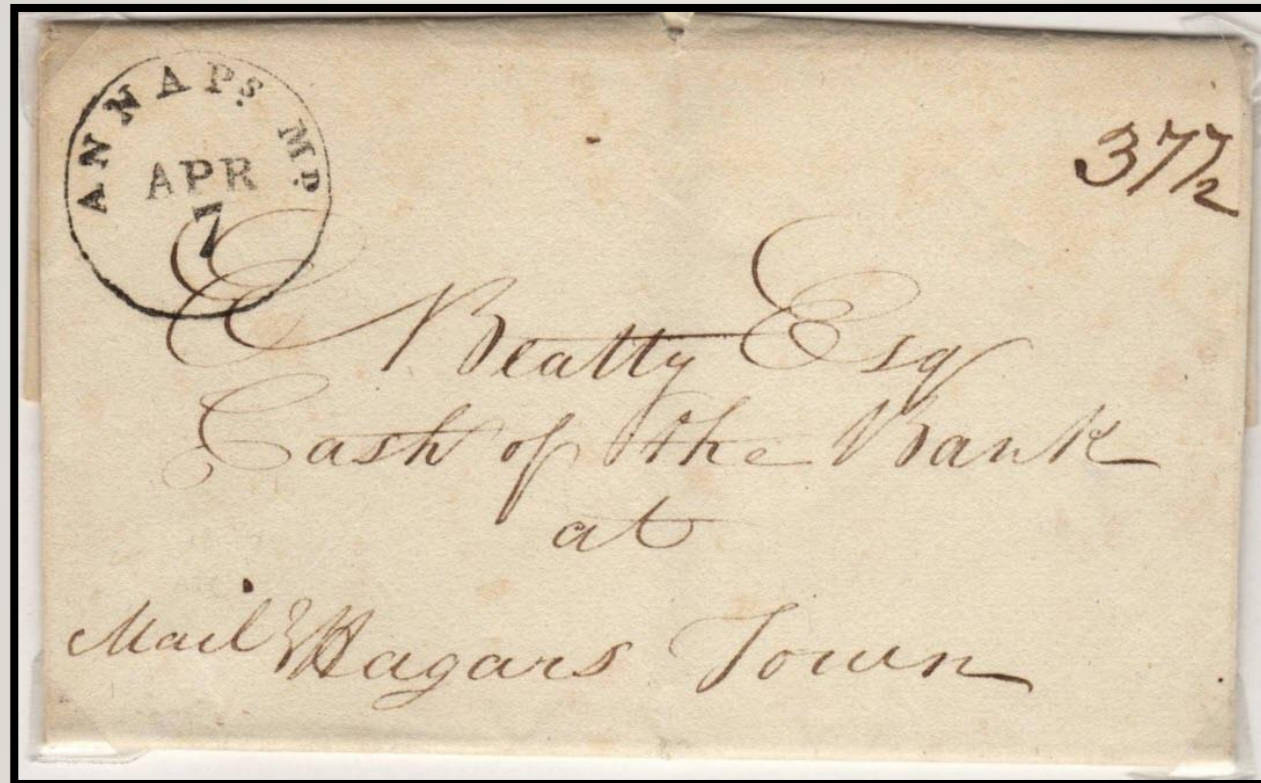 ANNAPS. MD.
APR
7
37½
E Beatty Esq
Cash of the Bank
at
Mail Hagars Town